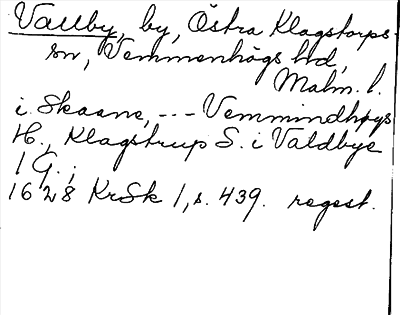 Vallby, by, Östra Klagstorps
sn, Vemmenhögs hd,
Malm. l.
i Skaane, --- Vemmindhøgs
H., Klagstrup S. i Valdbye
1 G.;
1628 KrSk 1, s. 439. regest.